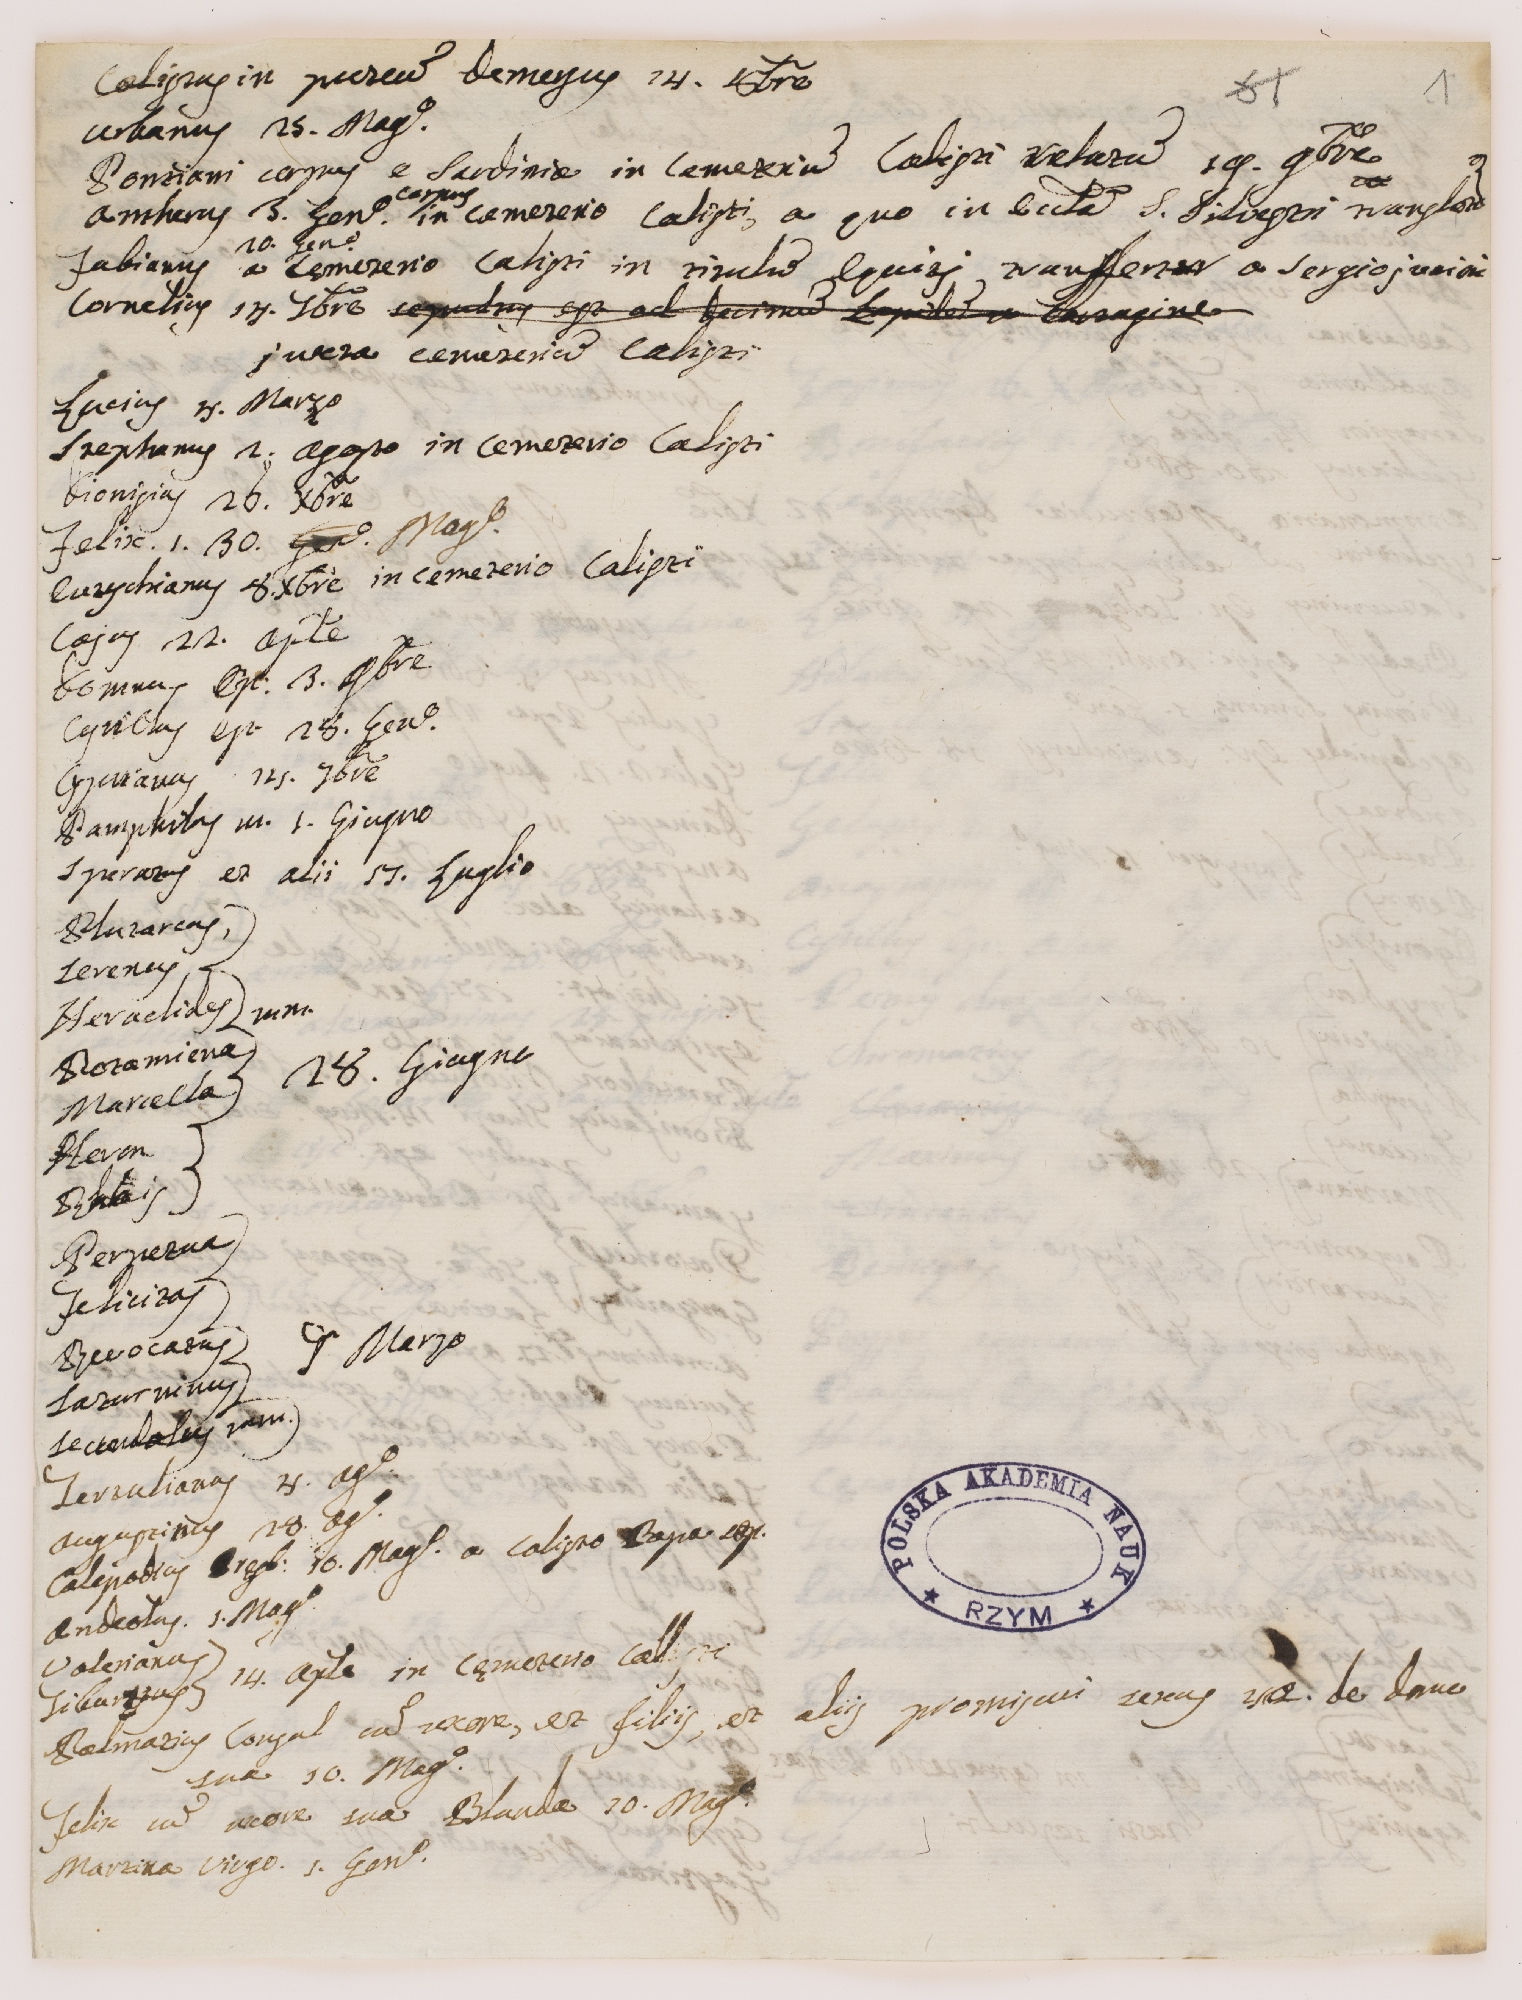 Calistus in puteũ demersus 14. 8bre
51 1
Urbanus 25. Magº.
Pontiani corpus e Sardinia in Cemeteriũ Calisti relatũ 19. 9bre
Antherus 3. Genº. corpus in cemeterio Calisti, a quo in Eccłã S. Silvestri translatũ
Fabianus 20. Genº. a Cemeterio Calisti in titulũ Equitij transfertur a Sergio juniori
Cornelius 14. 7bre sepultus est ad decimũ lapidẽ a Cartagine
juxta cemeteriũ Calisti
Lucius 4. Marzo
Stephanus 2. Agosto in Cemeterio Calisti
Dionisius 26. Xbre
Felix. 1. 30. Genº. Magº.
Eutychianus 8. Xbre in cemeterio Calisti
Cajus 22. Aple
Domnus Ep. 3. 9bre
Cyrillus Ep. 28. Genº.
Cyprianus 14. 7bre
Pamphilus m. 1. Giugno
Speratus et alii 17. Luglio
Plutarcus,
Serenus
Heraclides mm.
Potamiena
Marcella 28. Giugno
Heron
Rhais
Perpetua
Felicitas
Revocatus 7 Marzo
Saturninus
Secundolus mm.
Tertulianus 4. Agº.
Augustinus 28. Agº.
Calepodius Presb. 10. Magº. a Calisto Papa sep.
Andeolus. 1. Magº
Valerianus
Tiburtius 14. Aple in Cemeterio Callisti
Palmatius Consul cũ uxore, et filiis, et aliis promiscui sexus 42. de domo
sua 10. Magº.
Felix cũ uxore sua Blanda 10. Magº.
Martina Virgo. 1. Genº.
POLSKA AKADEMIA NAUK
RZYM